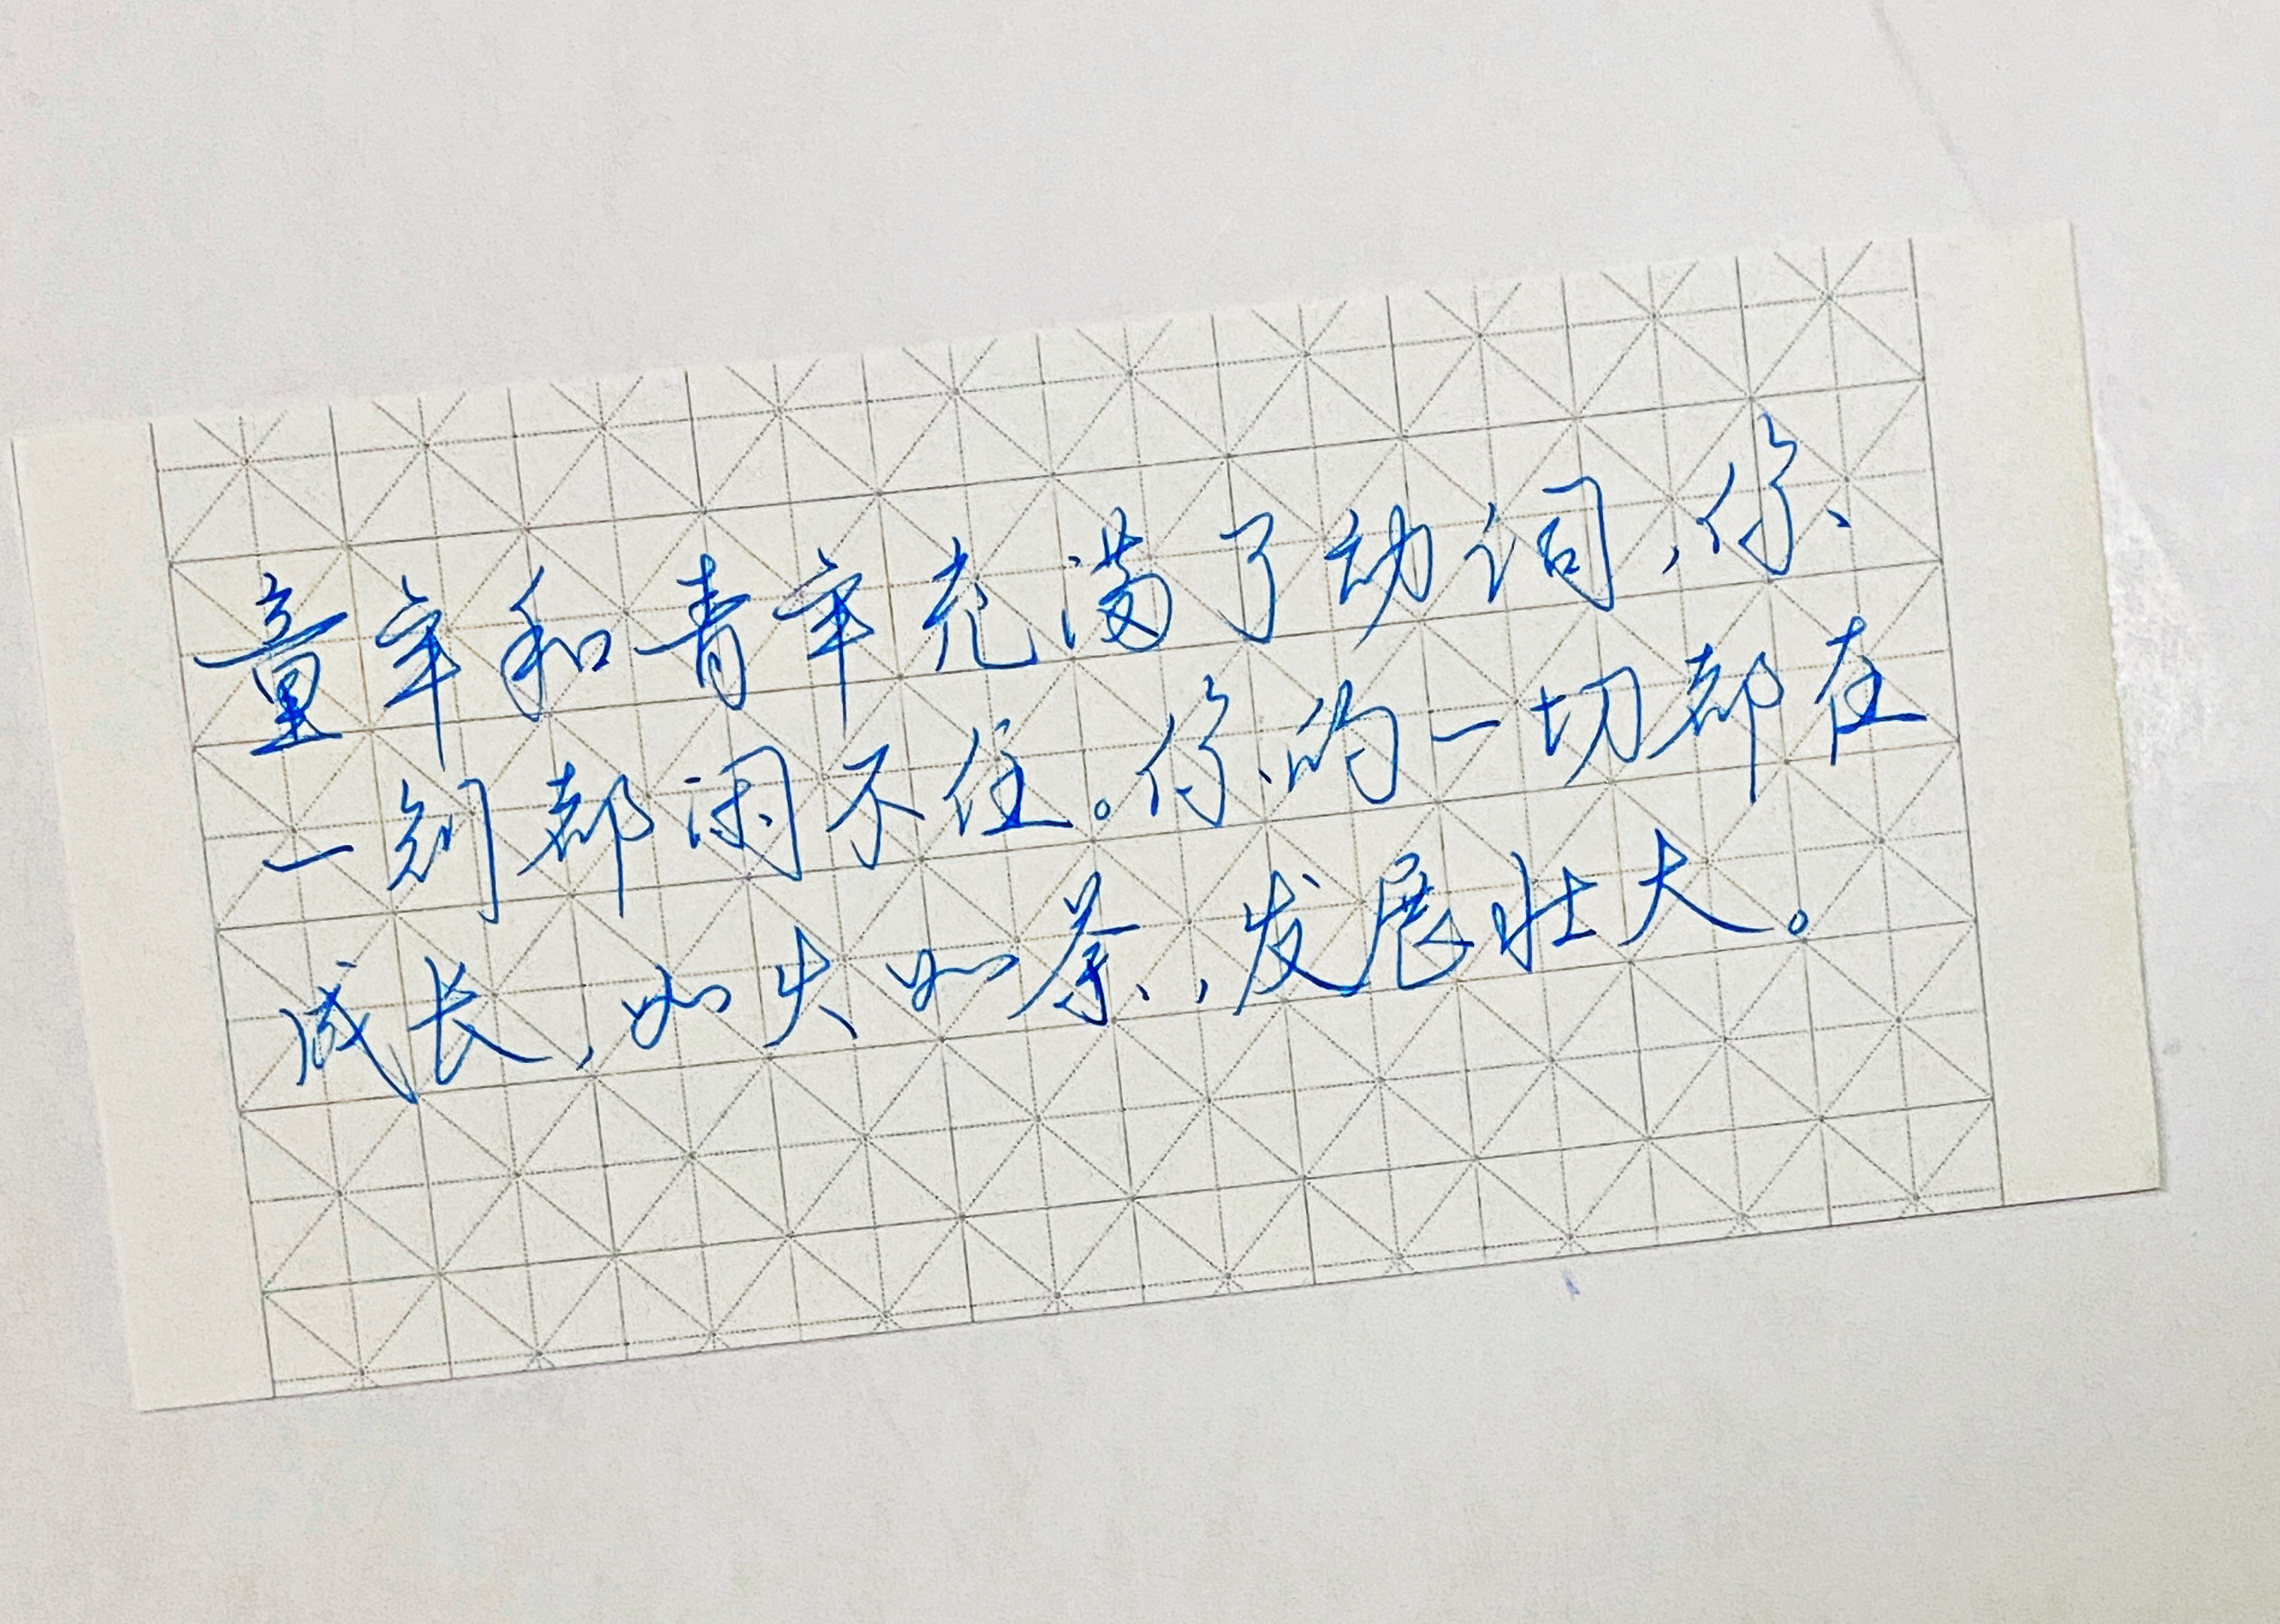 童年和青年充满了动词，你
一刻都闲不住。你的一切都在
成长，如火如荼，发展壮大。